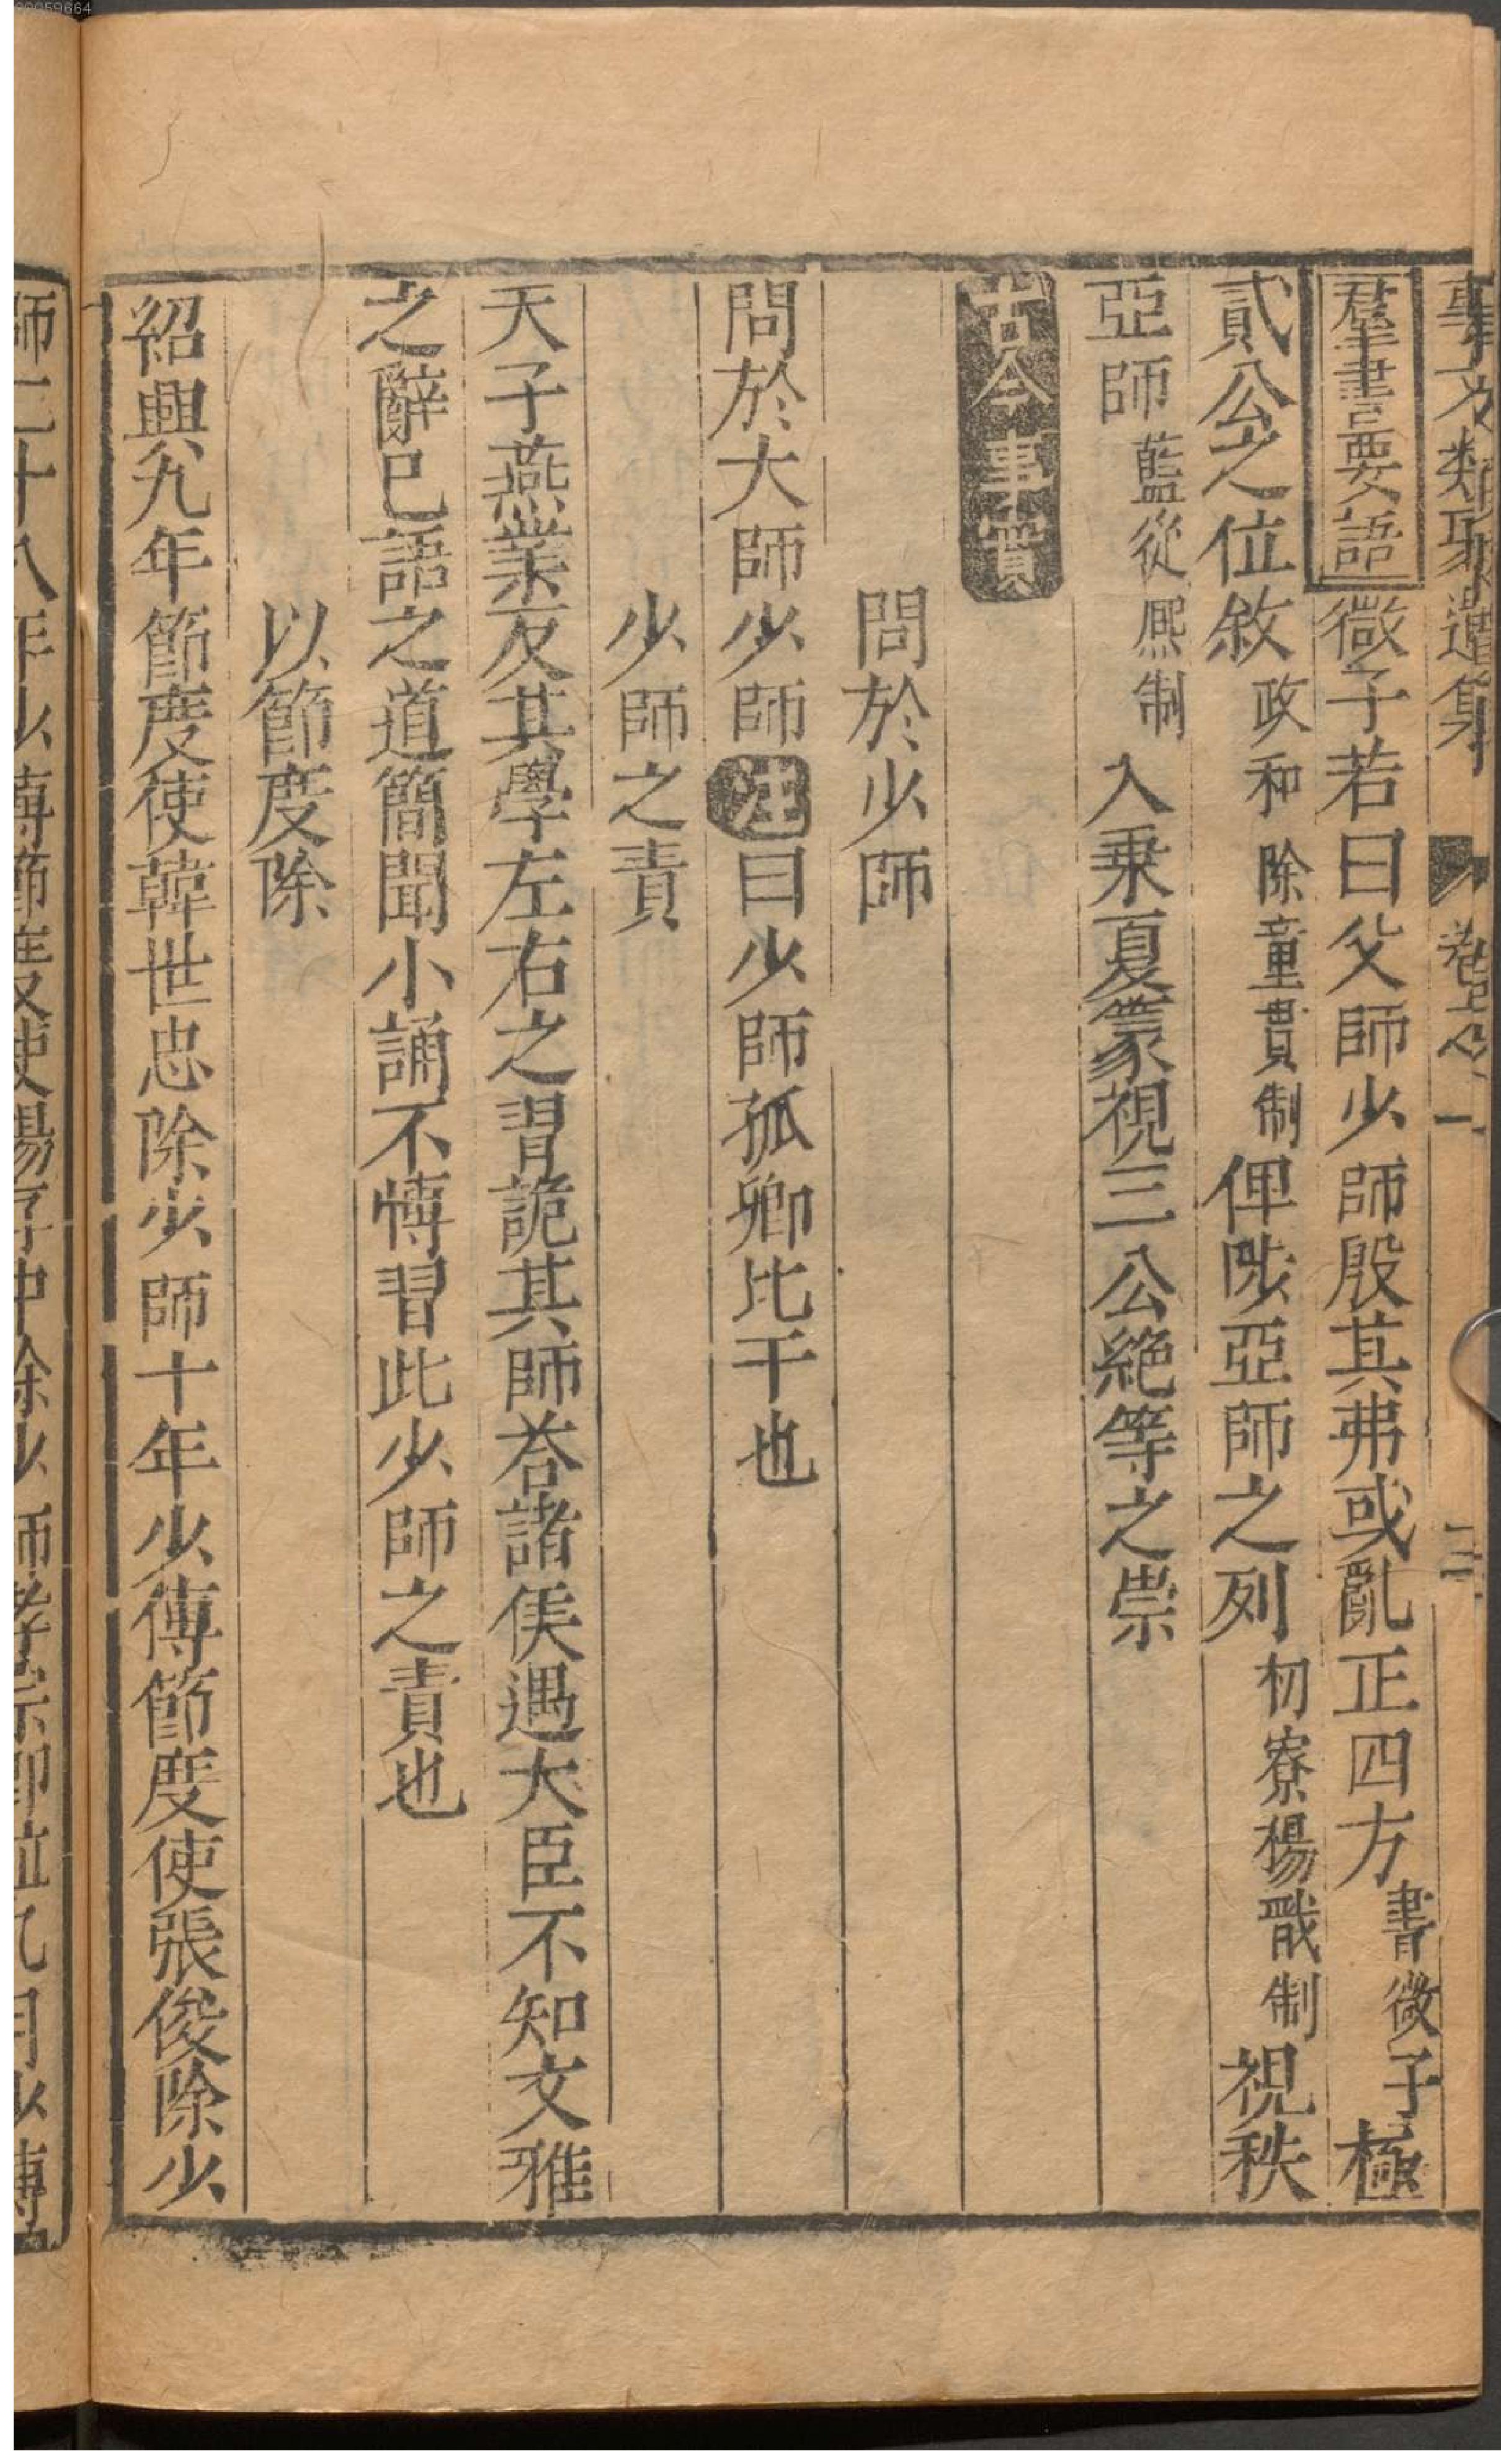 00059664
事文類聚遺集 卷之一 二
羣書要語 微子若曰父師少師殷其弗或亂正四方 書微子 極
貳公之位敘 政和除童貫制 俾陟亞師之列 初寮楊戩制 視秩
亞師 藍從熈制 入乗夏篆視三公絶等之崇
古今事實
問於少師
問於大師少師 注 曰少師孤卿比干也
少師之責
天子燕業反其學左右之習詭其師荅諸侯遇大臣不知文雅
之辭已語之道簡聞小誦不愽習此少師之責也
以節度除
紹興九年節度使韓世忠除少師十年少傅節度使張俊除少
師二十八年少傅節度使楊存中除少師孝宗即位九月少傅